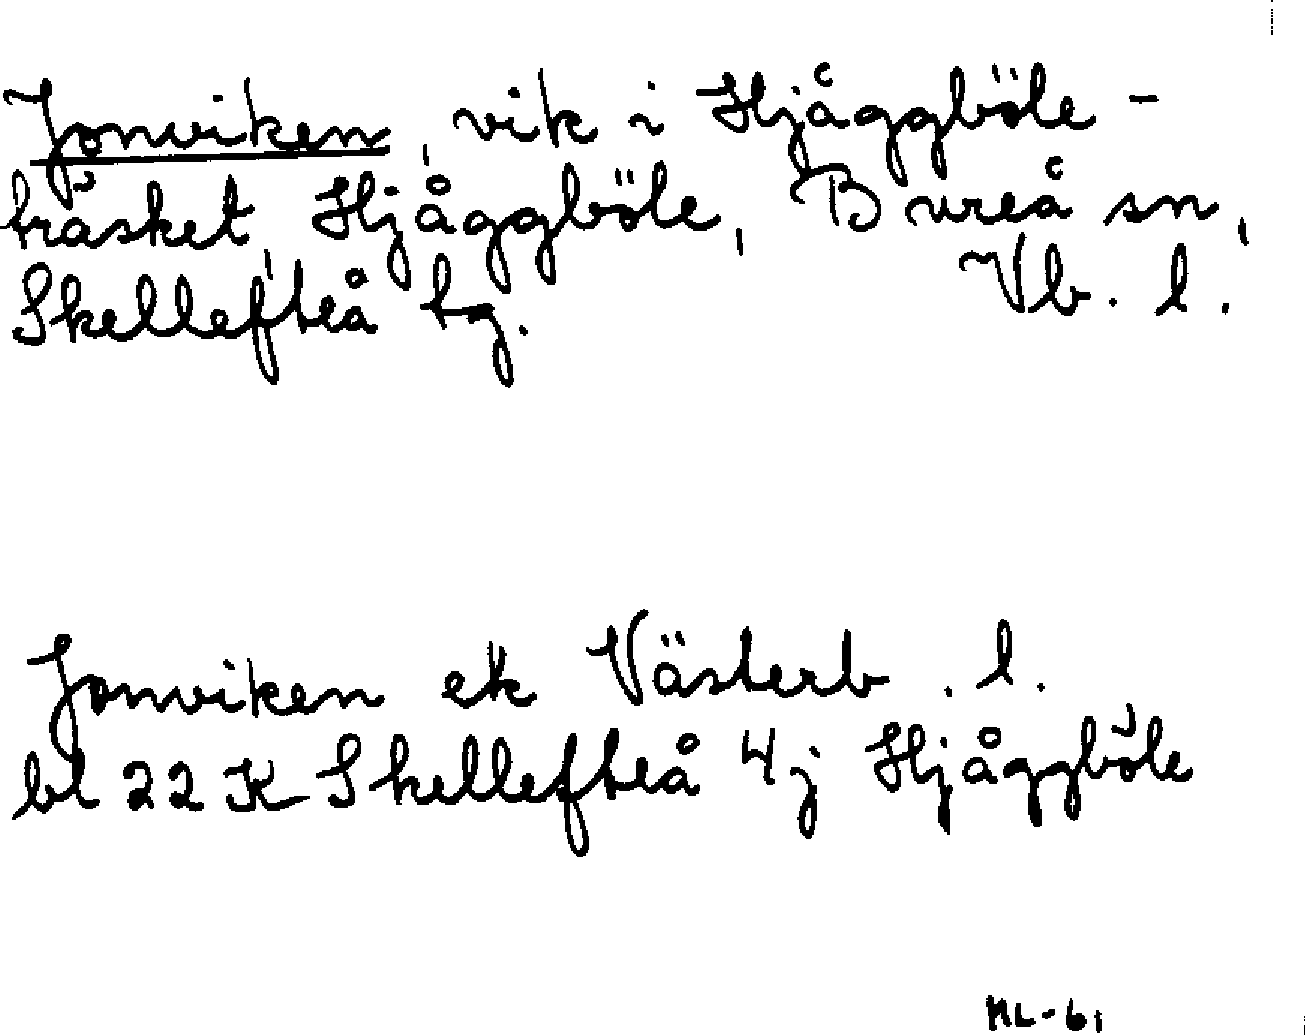 Jonviken, vik i Hjåggböle-
träsket, Hjåggböle, Bureå sn,
Skellefteå tg. Vb. l.
Jonviken ek Västerb. l.
bl 22 K Skellefteå 4j Hjåggböle
NL-61